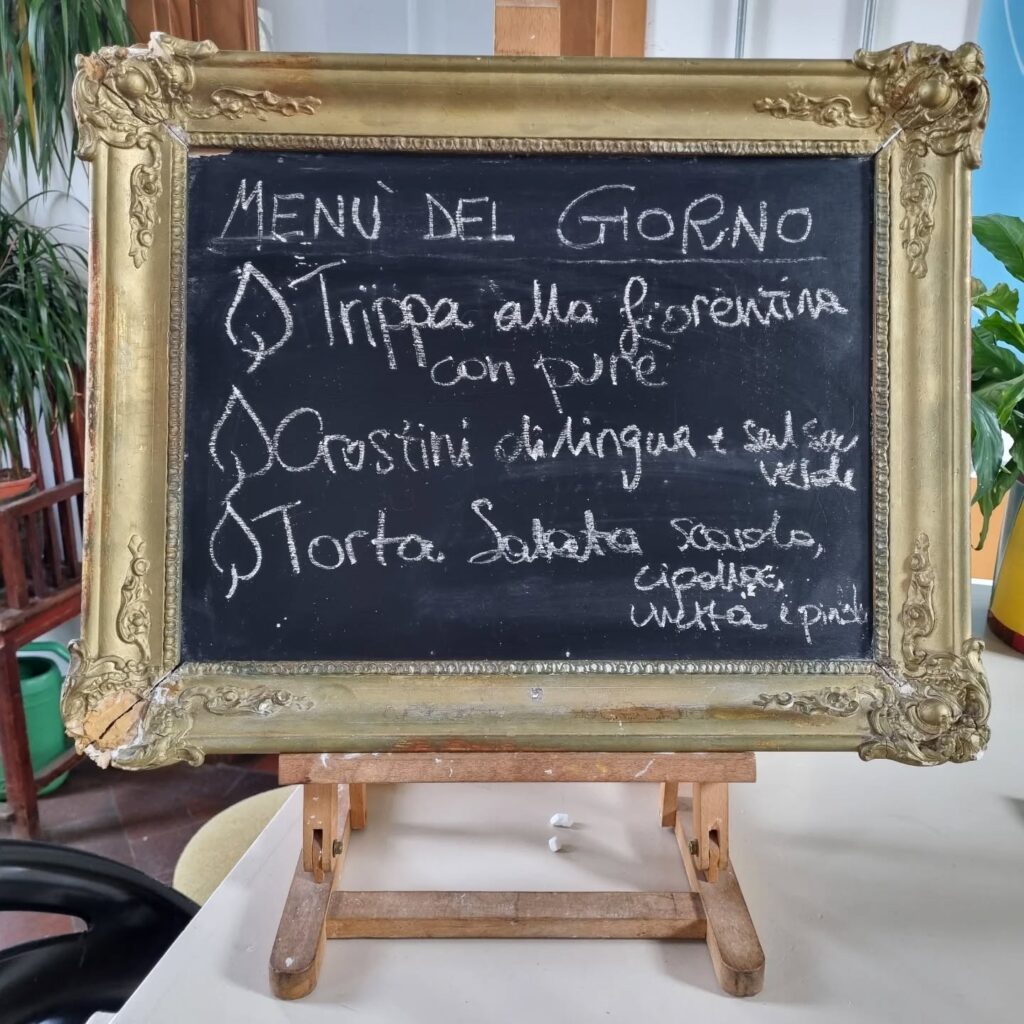 MENÙ DEL GIORNO
Trippa alla fiorentina
con purè
Crostini di lingua e salsa
verde
Torta Salata scarola,
cipolle,
uvetta e pinoli